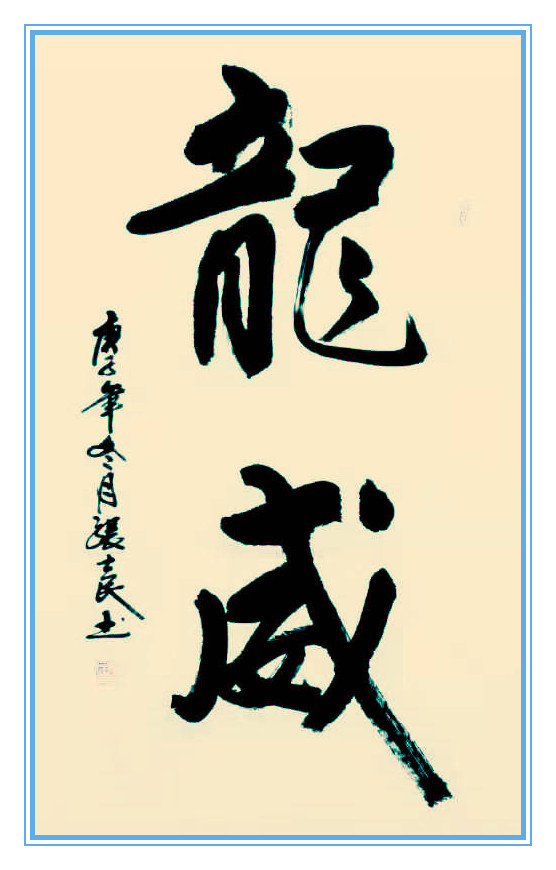 龍威
庚子年冬月張士民书